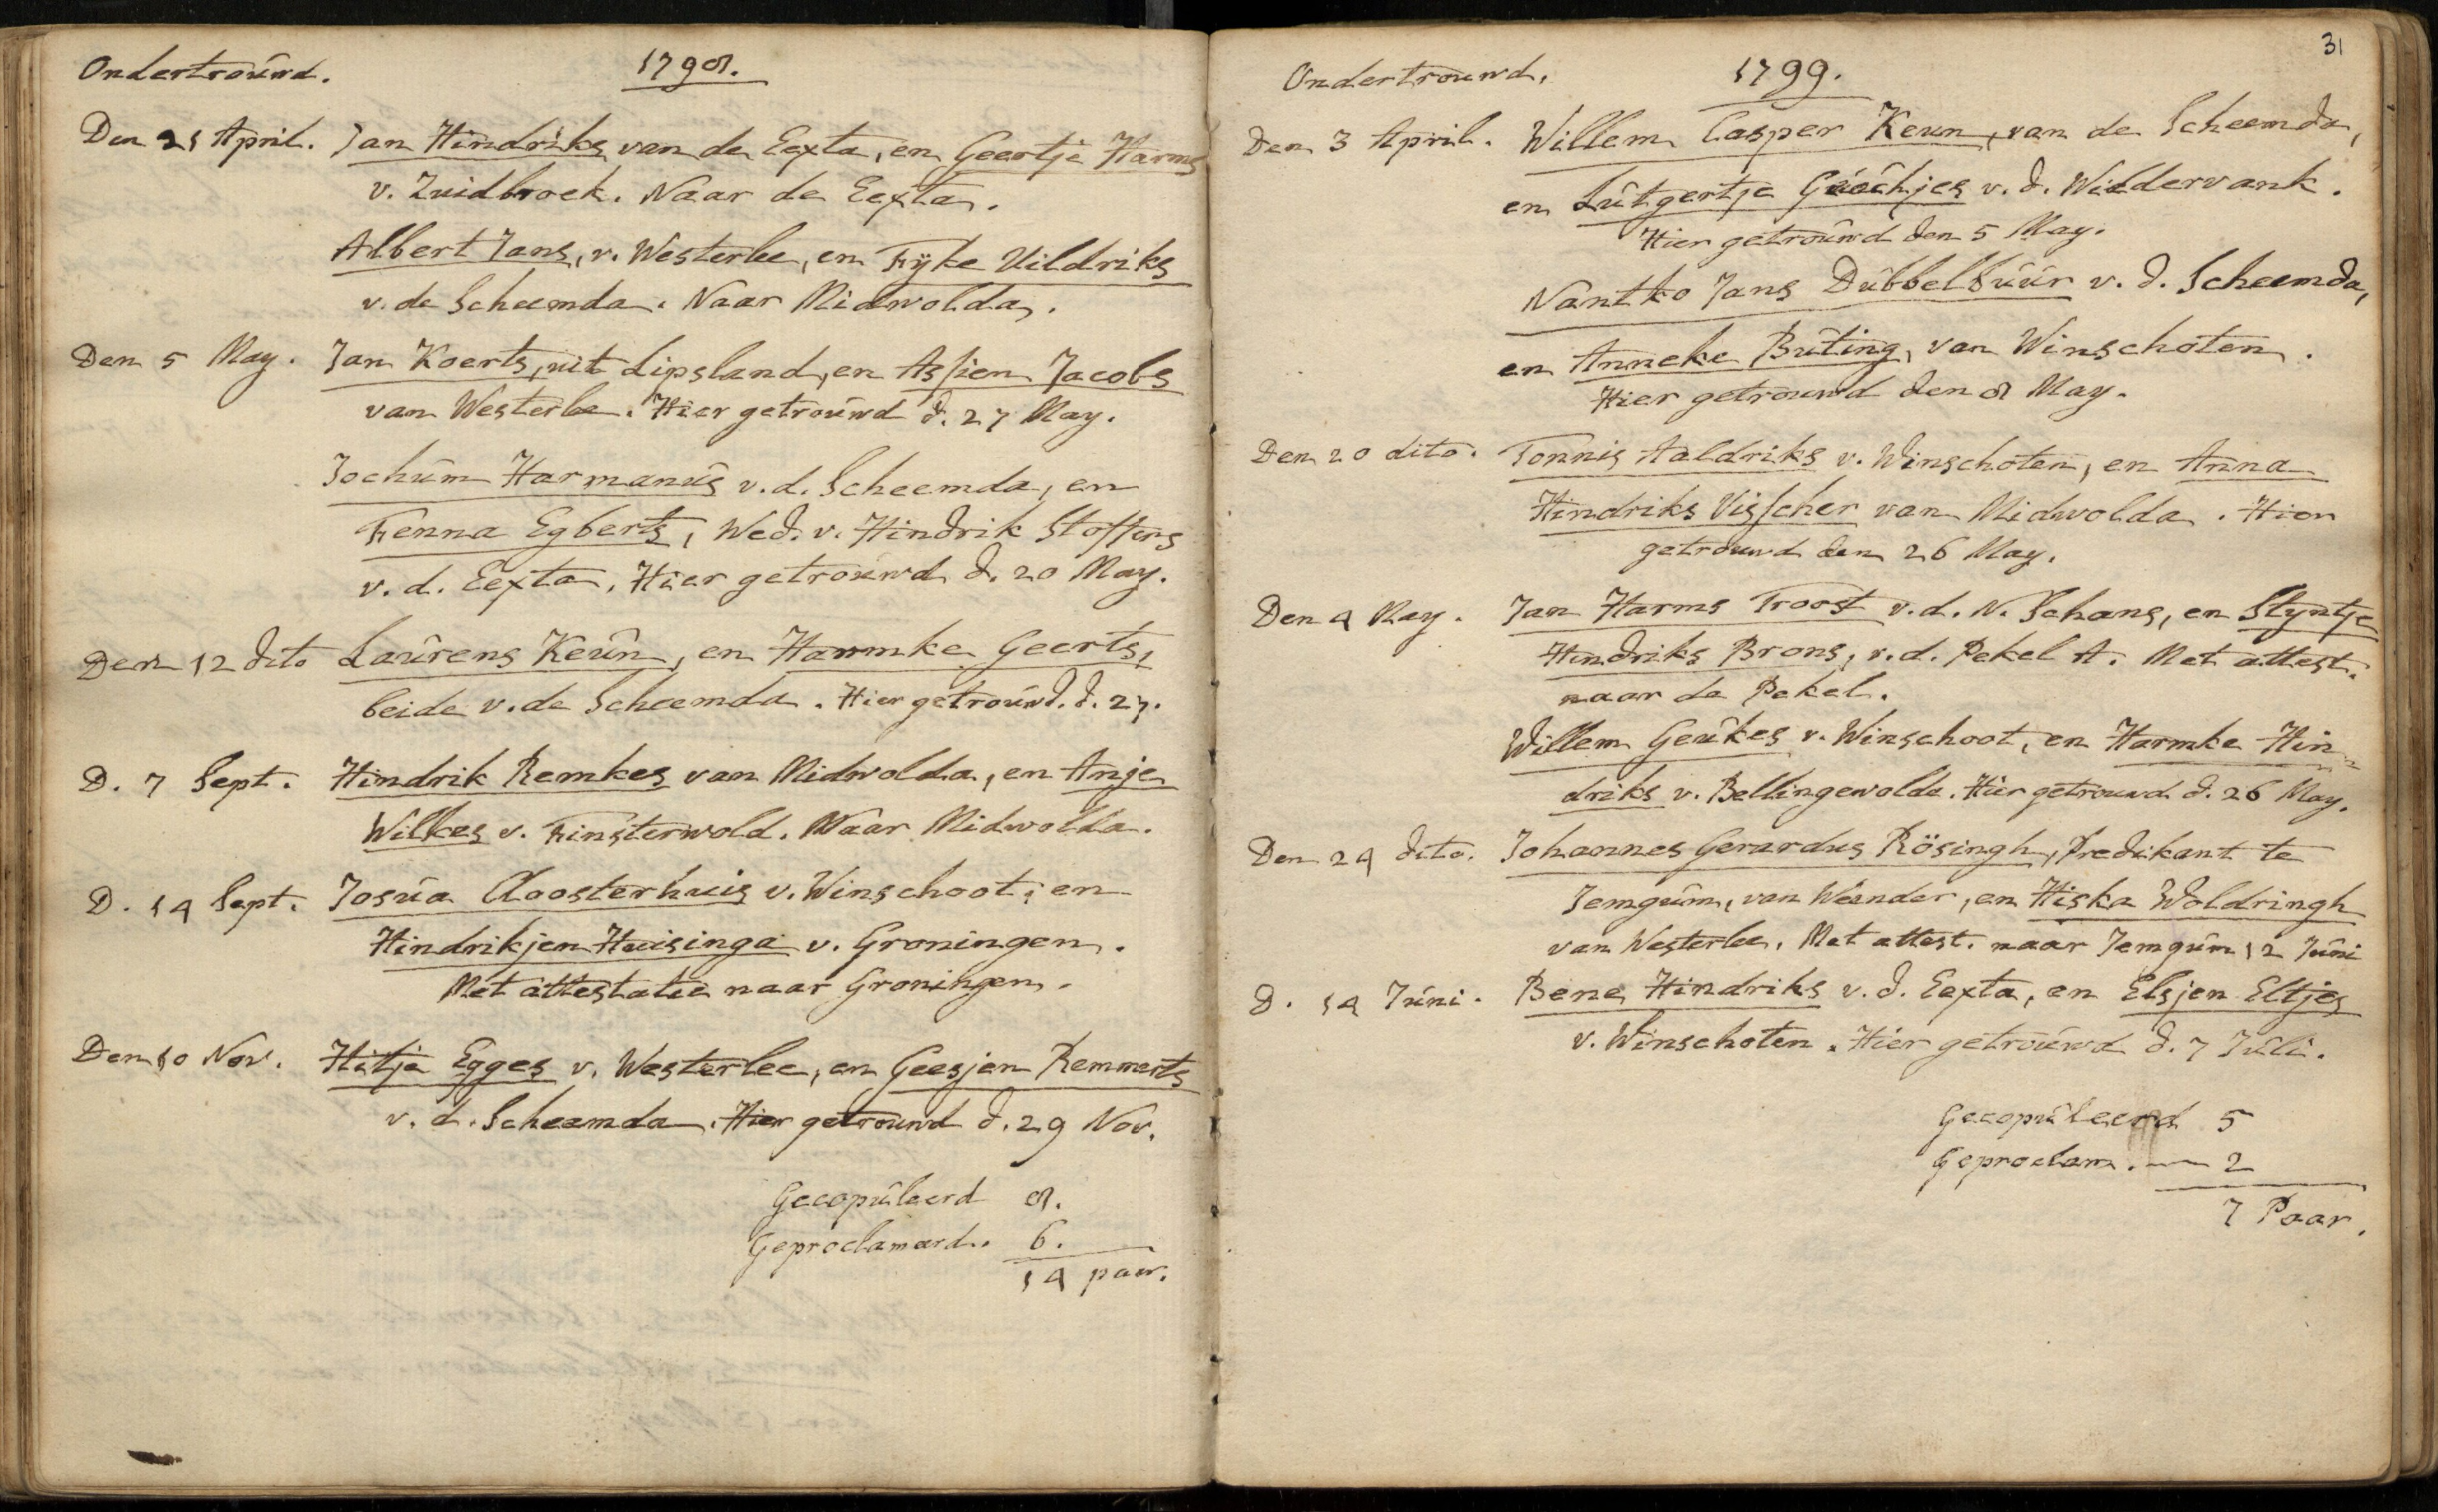 Ondertrouwd. 1798.
Den 21 April. Jan Hindriks van de Eexta, en Geertje Harms
v. Zuidbroek. Naar de Eexta.
Albert Jans, v. Westerlee, en Fyke Uildriks
v. de Scheemda. Naar Midwolda.
Den 5 May. Jan Koerts, uit Lipsland, en Assien Jacobs
van Westerlee. Hier getrouwd d. 27 May.
Jochum Harmanus v. d. Scheemda, en
Fenna Egberts, Wed. v. Hindrik Stoffers
v. d. Eexta. Hier getrouwd d. 20 May.
Den 12 dito Laurens Keun, en Harmke Geerts,
beide v. de Scheemda. Hier getrouwd. d. 27.
D. 7 Sept. Hindrik Remkes van Midwolda, en Anje
Wilkes v. Finsterwold. Naar Midwolda.
D. 14 Sept. Josua Cloosterhuis v. Winschoot, en
Hindrikjen Huisinga v. Groningen.
Met attestatie naar Groningen.
Den 10 Nov. Hitje Egges v. Westerlee, en Geesjen Remmerts
v. d. Scheemda. Hier getrouwd d. 29 Nov.
Gecopuleerd 8.
Geproclameerd. 6.
14 paar.
31
Ondertrouwd, 1799.
Den 3 April. Willem Casper Keun, van de Scheemda,
en Lutgertje v. d. Wildervank.
Hier getrouwd den 5 May.
Nantko Jans Dubbelbuur v. d. Scheemda,
en Anneke Buting, van Winschoten.
Hier getrouwd den 8 May.
Den 20 dito. Tonnis Aaldriks v. Winschoten, en Anna
Hindriks Visscher van Midwolda. Hier
getrouwd den 26 May.
Den 4 May. Jan Harms Troost v. d. N. Schans, en Styntje
Hindriks Brons, v. d. Pekel A. Met attest.
naar de Pekel.
Willem Geukes v. Winschoot, en Harmke Hin-
driks v. Bellingewolde. Hier getrouwd d. 26 May.
Den 24 dito. Johannes Gerardus Rösingh, Predikant te
Jemgum, van Weender, en Hiska Woldringh
van Westerlee. Met attest. naar Jemgum 12 Juni
D. 14 Juni. Bene Hindriks v. d. Eexta, en Elsjen Eltjes
v. Winschoten. Hier getrouwd d. 7 Juli.
Gecopuleerd 5
Geproclam. — 2
7 Paar.